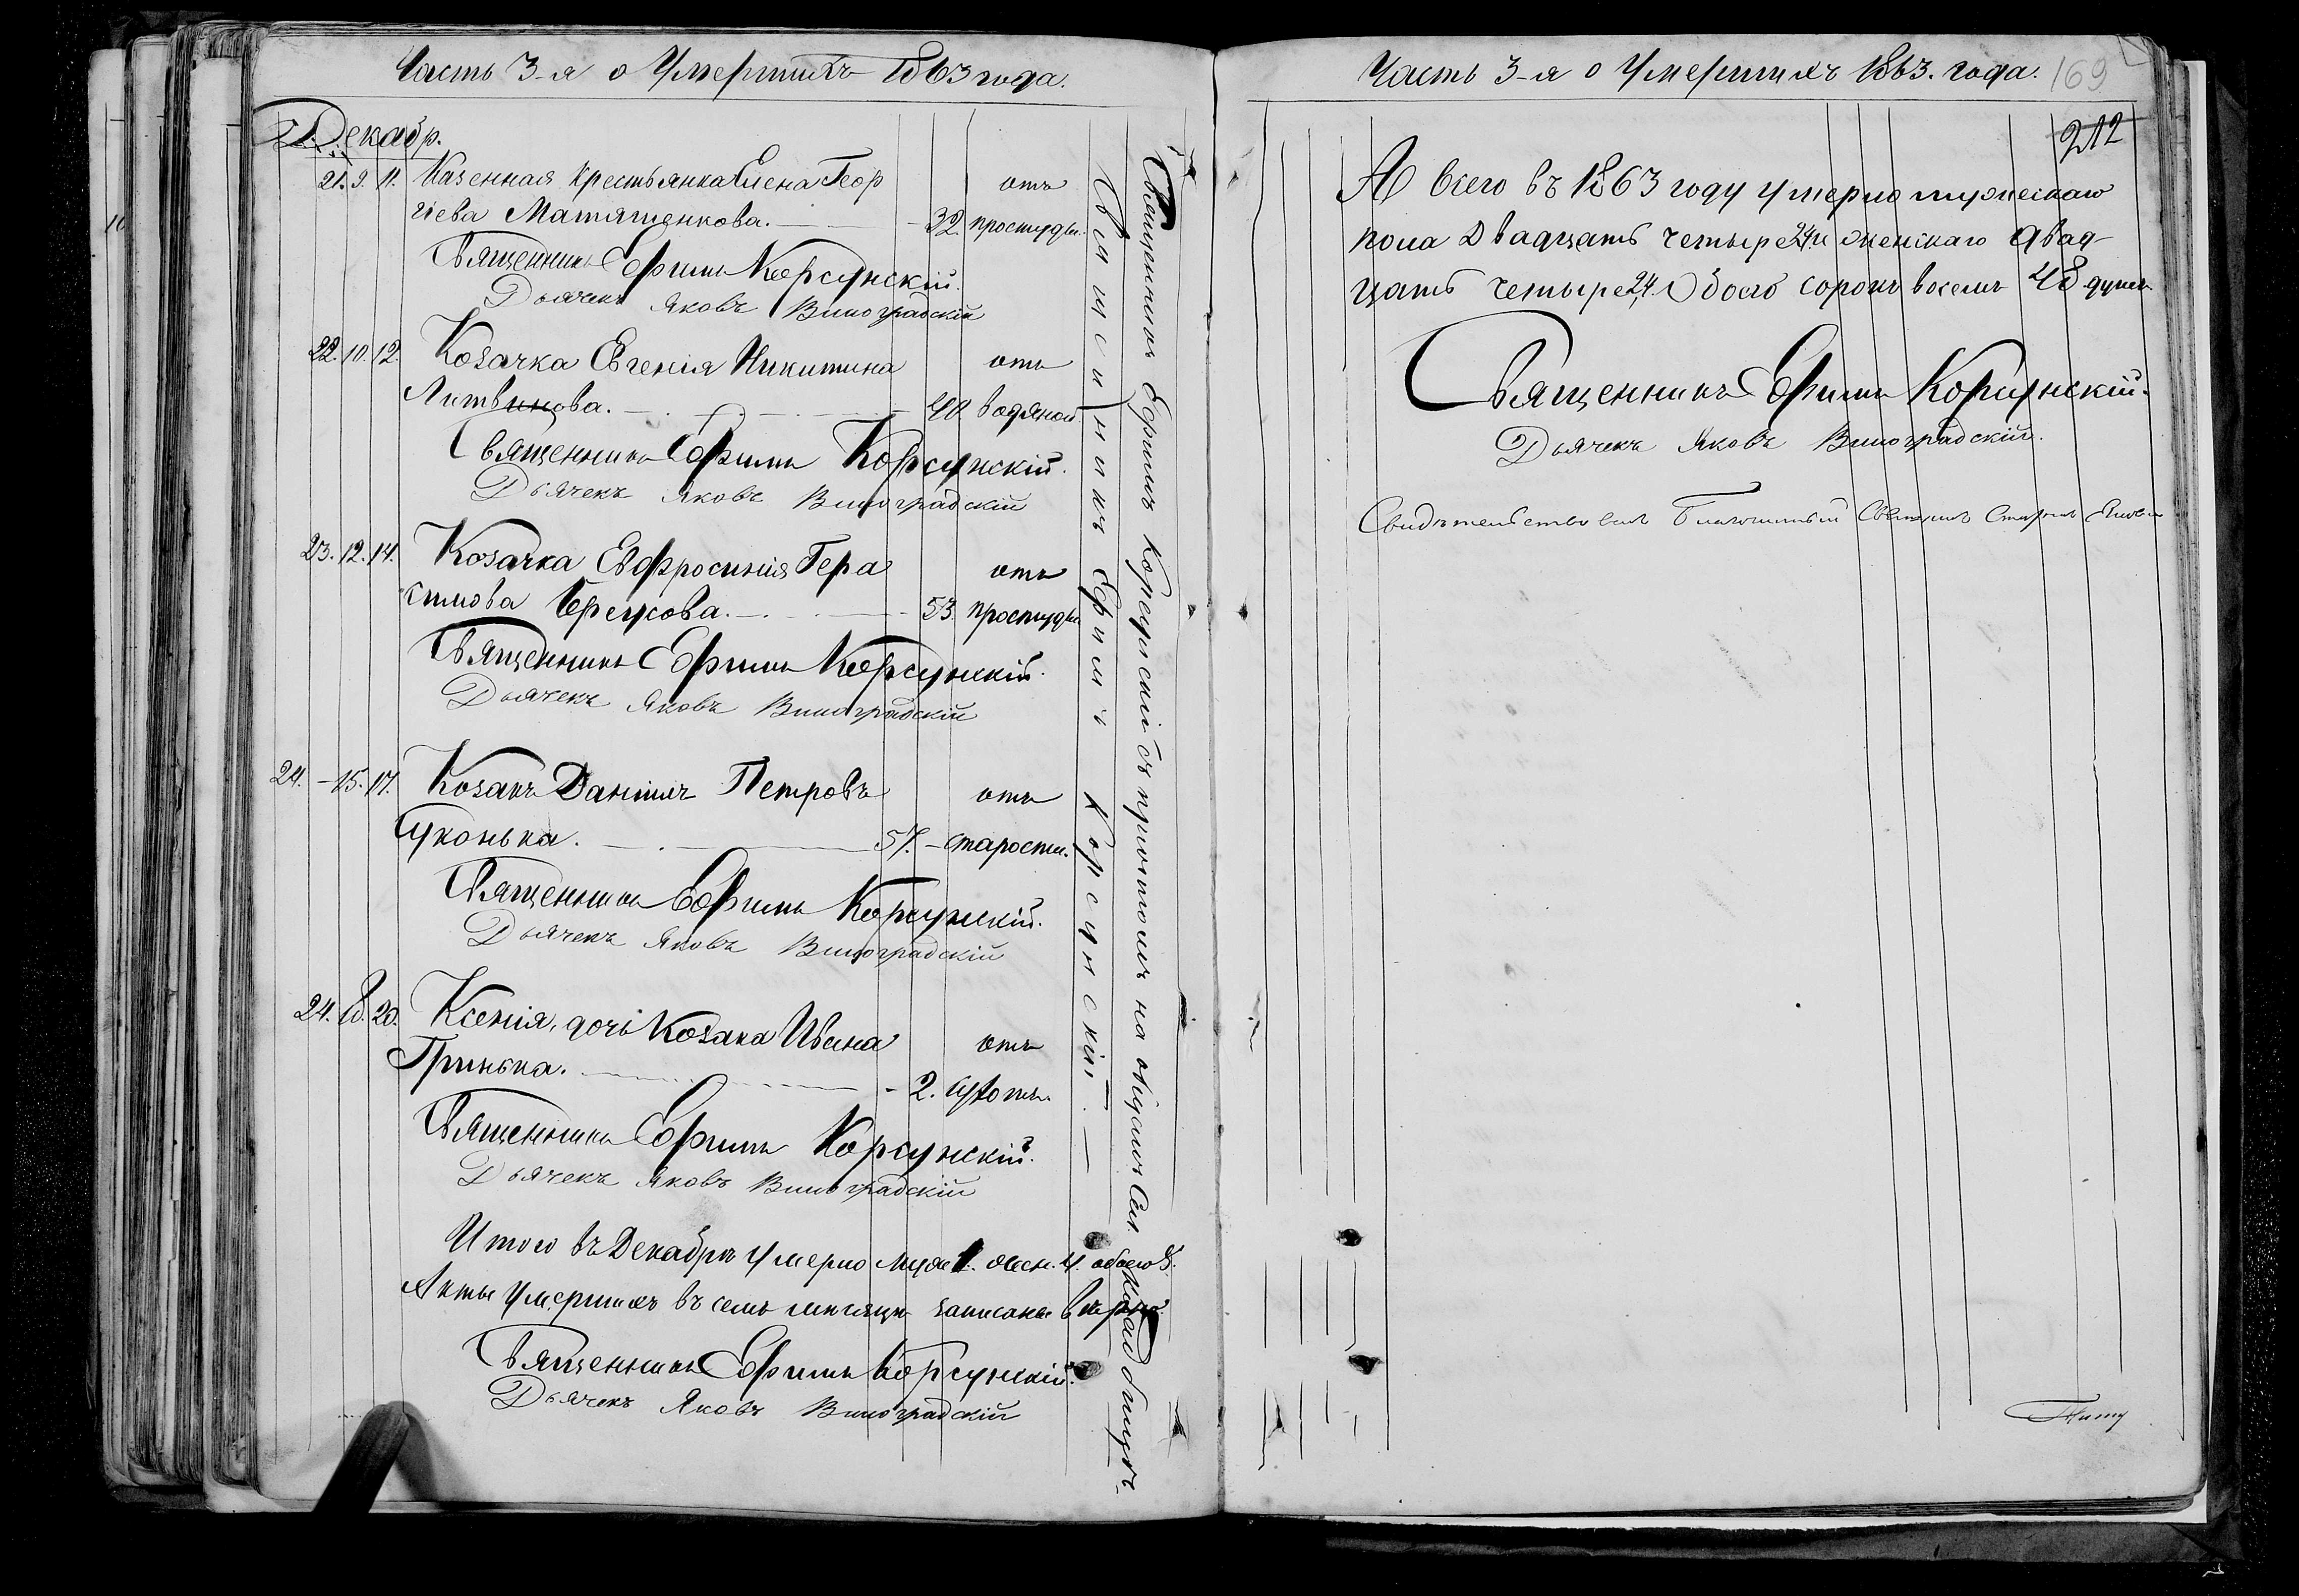 Часть 3-я о Умершихъ 1863 года.
Декабр.
21. 9. 11. Казенная крестьянка Елена Геор
гіева Матяшенкова. 32. отъ простуды.
Священникъ Ефимъ Корсунскій.
Дьячекъ Яковъ Виноградскій
22. 10. 12. Козачка Евгенія Никитина
Литвинова. 40. отъ водяной.
Священникъ Ефимъ Корсунскій.
Дьячекъ Яковъ Виноградскій
23. 12. 14. Козачка Евфросинія Гера
симова 53. отъ простуды
Священникъ Ефимъ Корсунскій.
Дьячекъ Яковъ Виноградскій
24. – 15. 17. Козакъ Даніилъ Петровъ
Суконька. 57. – отъ старости.
Священникъ Ефимъ Корсунскій.
Дьячекъ Яковъ Виноградскій
24. 18. 20. Ксенія, дочь Козака Ивана
Гринька. 2. отъ сухотъ.
Священникъ Ефимъ Корсунскій.
Дьячекъ Яковъ Виноградскій
Итого въ Декабрѣ умерло муж. 1. жен. 4. обоего 5.
Акты умершихъ въ семъ мѣсяцѣ записаны вѣрно.
Священникъ Ефимъ Корсунскій.
Дьячекъ Яковъ Виноградскій
Священникъ Ефимъ Корсунскій. —
Священникъ Ефимъ Корсунскій съ причтомъ на общемъ кладбищѣ.
Часть 3-я о Умершихъ 1863. года.
169
212
А всего въ 1863 году умерло мужескаго
пола двадцать четыре 24. и женскаго двад-
цать четыре 24. Обоего сорокъ восемь 48 душъ.
Священникъ Ефимъ Корсунскій.
Дьячекъ Яковъ Виноградскій.
Свидѣтельствовалъ Благочинный Священникъ